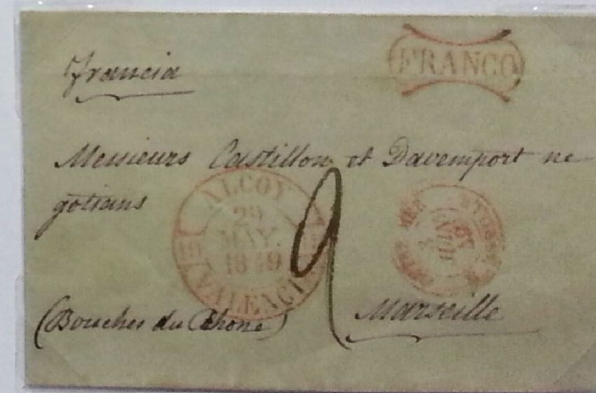 Francia
FRANCO
Messieurs Castillon et Davemport ne
gotians
ALCOY
29
MAY.
1849
VALENCIA
9
Marseille
(Bouches du Rhone)